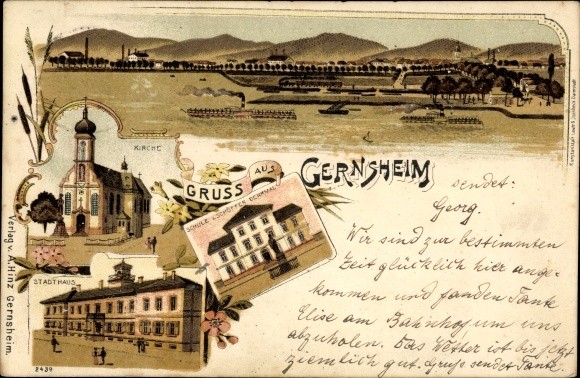 KIRCHE
GRUSS AUS
GERNSHEIM
SCHULE u. SCHÖFFER DENKMAL
STADTHAUS
2439
Verlag v. A. Hinz Gernsheim.
sendet:
Georg.
Wir sind zur bestimmten
Zeit glücklich hier ange-
kommen und fanden Tante
Elise am Bahnhof um uns
abzuholen. Das Wetter ist bis jetzt
ziemlich gut. Gruß sendet Tante.